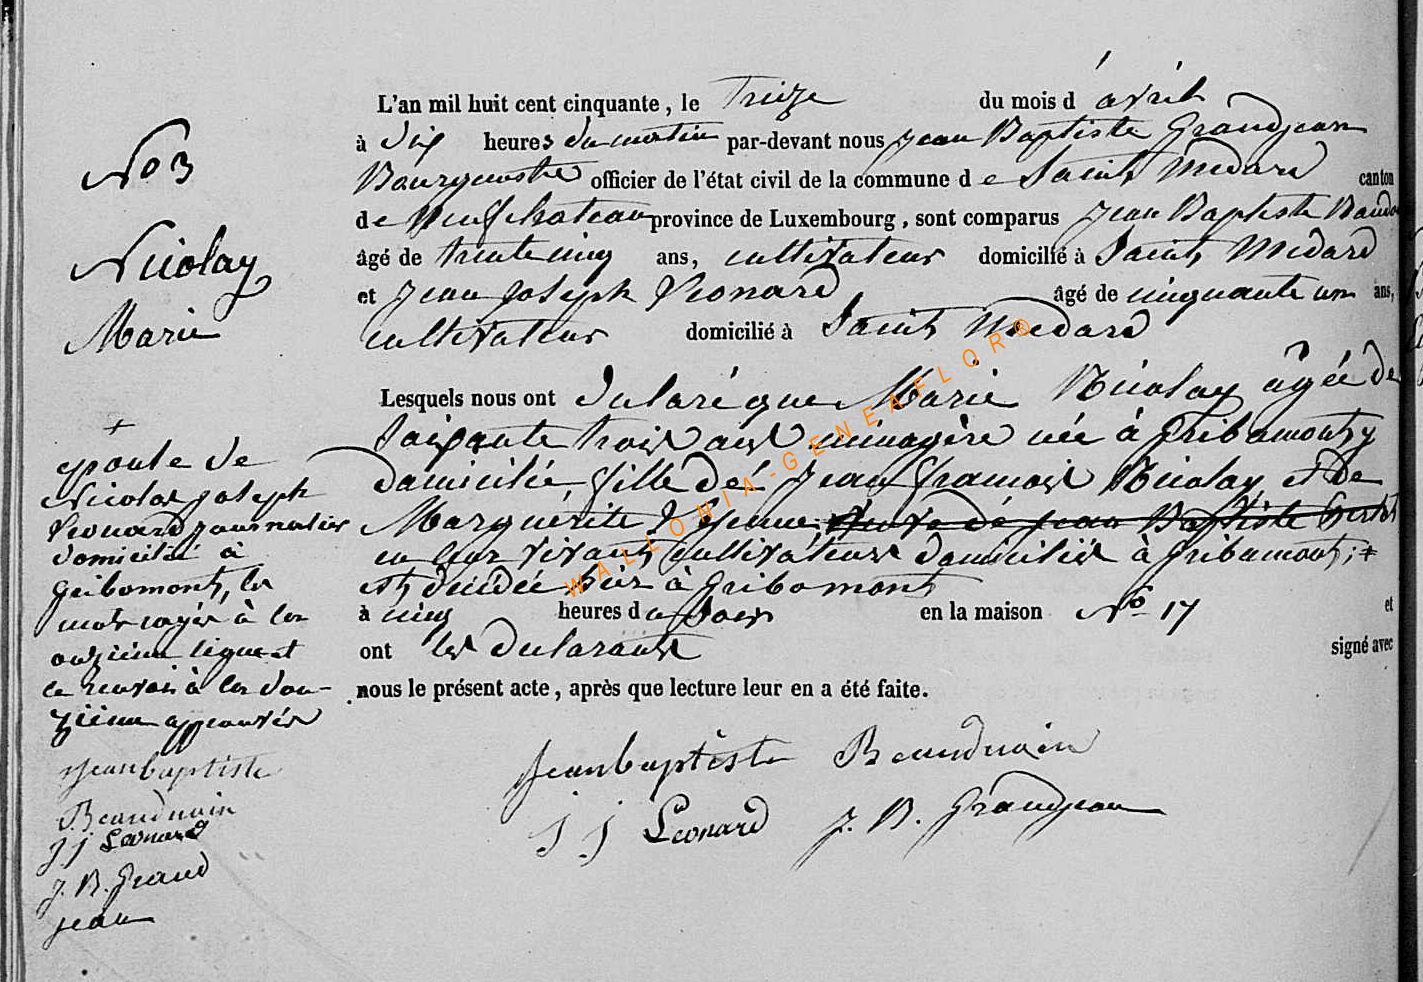 L'an mil huit cent cinquante, le Treize du mois d'avril
à dix heures du matin par-devant nous Jean Baptiste Grandjean
Bourgmestre officier de l'état civil de la commune de Saint Medard canton
de Neufchateau province de Luxembourg, sont comparus Jean Baptiste
âgé de trente cinq ans, cultivateur domicilié à Saint Medard
et Jean Joseph Léonard âgé de cinquante un ans,
cultivateur domicilié à Saint Medard
Lesquels nous ont déclaré que Marie Nicolay âgée de
Soixante trois ans ménagère née à Gribomont y
domiciliée, fille de Jean François Nicolay et de
Marguerite veuve de Jean Baptiste
en leur vivant cultivateurs domiciliés à Gribomont; +
est décédée hier à Gribomont
à cinq heures du soir en la maison No 17 et
ont les déclarants signé avec
nous le présent acte, après que lecture leur en a été faite.
Jean baptiste Beauduain
J J Léonard J. B. Grandjean
No 3
Nicolay
Marie
+
epouse de
Nicolas Joseph
Léonard journalier
domicilié à
Gribomont, les
mots rayés à la
onzième ligne et
le renvoi à la dou-
zième approuvés
Jean baptiste
Beauduain
J J Léonard
J. B. Grand
jean
WALLONIA-GENEAFLOR®